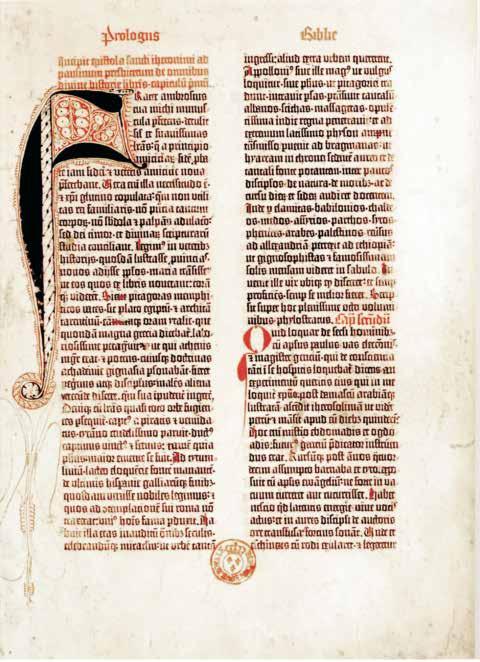 Prologus
Biblie
Incipit epistola sancti iheronimi ad
paulinum presbiterum de omnibus
divine historie libris. capitulū pmū.
Frater ambrosius
tua michi munus-
cula pferens. detulit
sil et suavissimas
lrās. q̄ a principio
amiciciaꝝ. fidē pba
te iam fidei et veteris amicicie nova
pferebant. Vera enī illa necessitudo ē.
et xpī glutino copulata. quā non uti-
litas rei familiaris. nō pntia tantum
corpoꝝ. nō sbdola et palpās adulacō.
sed dei timor. et divinaꝝ scripturarum
studia conciliant. Legimꝰ in veteribꝫ
historijs. quosdā lustrasse puīcias.
novos adisse pplos. maria trāsisse.
ut eos quos ex libris noverant: corā
qꝫ viderēt. Sicut pitagoras memphi
ticos vates. sic plato egiptū. et architā
tarentinū. eamqꝫ oram ytalie. que
quondā magna grecia dicebat. labo-
riosissime pegravit: et ut qui athenis
mgr erat. et potens. cuiusqꝫ doctrinas
achademie gignasia psonabāt. fieret
pegrinus atqꝫ discipulus. malēs aliena
verecūde discere. quā sua īpudēter ingerere.
Deniqꝫ cū lrās quasi toto orbe fugien-
tes pseqit. captꝰ a piratis et venūda-
tus. tyrāno crudelissimo paruit. ductꝰ
captivus vinctꝰ et servus: tamē quia
phūs. maior emēte se fuit. Ad tytum
livium. lacteo eloquēcie fonte manantē.
de ultimis hispanie galliaꝝqꝫ finibꝫ.
quosdam venisse nobiles legimus: et
quos ad ꝯtemplaconē sui roma nō
traxerat: uniꝰ hoīs fama pduxit. Ha
buit illa etas inauditū oībꝫ seculis.
celebrandūqꝫ miraculū. ut urbē tantā
ingressi: aliud extra urbem quererent.
Appolloniꝰ sive ille magꝰ ut vulgus
loquitur. sive phūs ut pitagorici tra
dunt. intravit psas. ptransivit caucasū.
albanos. scithas. massagetas. opulē-
tissima indie regna penetravit: et ad
extremum latissimo physon amne
trāsmisso puenit ad bragmanas: ut
hyarcam in throno sedentē aureo et de
tantali fonte potantem. inter paucos
discipulos. de natura. de moribꝫ. ac de
cursu dierū et siderū audiret docentem.
Inde p elamitas. babilonios. chalde-
os. medos. assyrios. parthos. syros.
phenices. arabes. palestinos. reversus
ad allexandriā. perrexit ad ethiopiā:
ut gignosophistas et famosissimam
solis mensam videret in sabulo. In
venit ille vir ubiqꝫ qd disceret: et semper
proficiens. semp se melior fieret. Scrip
sit super hoc plenissime octo volumi-
nibus. phylostratus. Capm secūdum
Quid loquar de secli hominibꝫ:
cū apłus paulus. vas electōis.
et magister gencium. qui de consciencia
tanti ī se hospitis loquebat. dicens. an
experimentū queritis eius qui in me
loquitur xpus. post damascū arabiāqꝫ
lustratā. ascēdit iherosolimā ut videret
petrū et mansit apud eū diebꝫ quindecī.
Hoc enī misterio ebdomadis et ogdo-
adis: futurꝰ genciū pdicator instruen
dus erat. Rursūqꝫ post ānos quatuor-
decim assumpto barnaba et tyto. expo
suit cū aplis evāgeliū: ne forte in va
cuum curreret aut cucurrisset. Habet
nescio qd latentis energie. vive vocis
actus: et in aures discipli de auctoris
ore transfusa. forcius sonat. Unde et
eschines cū rodi exularet. et legeretur